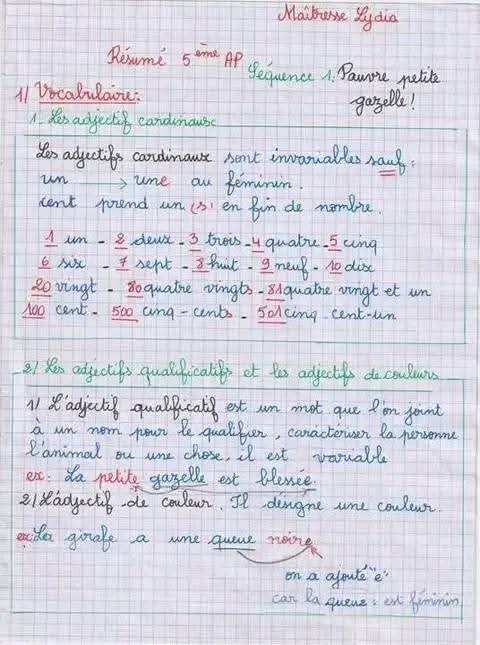 Maîtresse Lydia
Résumé 5ème AP
Séquence 1: Pauvre petite
gazelle!
1/ Vocabulaire:
1_ Les adjectif cardinaux
Les adjectifs cardinaux sont invariables sauf:
un → une au féminin.
cent prend un (s) en fin de nombre.
1 un - 2 deux - 3 trois - 4 quatre - 5 cinq
6 six - 7 sept - 8 huit - 9 neuf - 10 dix
20 vingt - 80 quatre vingts - 81 quatre vingt et un
100 cent - 500 cinq - cents - 501 cinq - cent-un
2/ Les adjectifs qualificatifs et les adjectifs de couleurs
1/ L'adjectif qualificatif est un mot que l'on joint
à un nom pour le qualifier, caractériser la personne
l'animal ou une chose, il est variable
ex: La petite gazelle est blessée.
2/ L'adjectif de couleur. Il désigne une couleur.
ex: La girafe a une queue noire
on a ajouté "e"
car la queue: est féminin